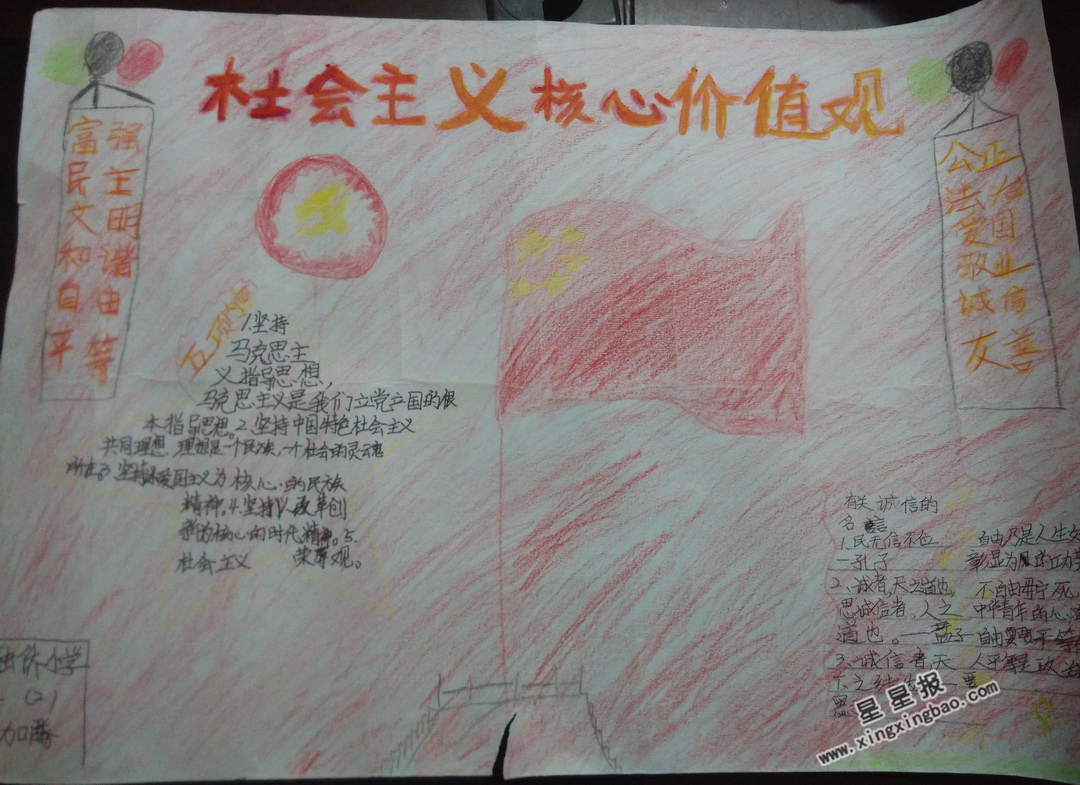 社会主义核心价值观
富强
民主
文明
和谐
自由
平等
公正
法治
爱国
敬业
诚信
友善
五项
1.坚持
马克思主
义指导思想,
马克思主义是我们立党立国的根
本指导思想。2.坚持中国特色社会主义
共同理想,理想是一个民族,一个社会的灵魂
所在3.坚持爱国主义为核心的民族
精神。4.坚持以改革创
新为核心的时代精神。5.
社会主义 荣辱观。
有关诚信的
名言
1.民无信不立
—孔子
2.诚者,天之道也,
思诚信者,人之
道也。——孟子
3.诚信者,天
下之结
自由乃是人生
彰显为
不自由毋宁死
中华青年的心
自由 平等
小学
(2)
加腾
星星报
www.xingxingbao.com